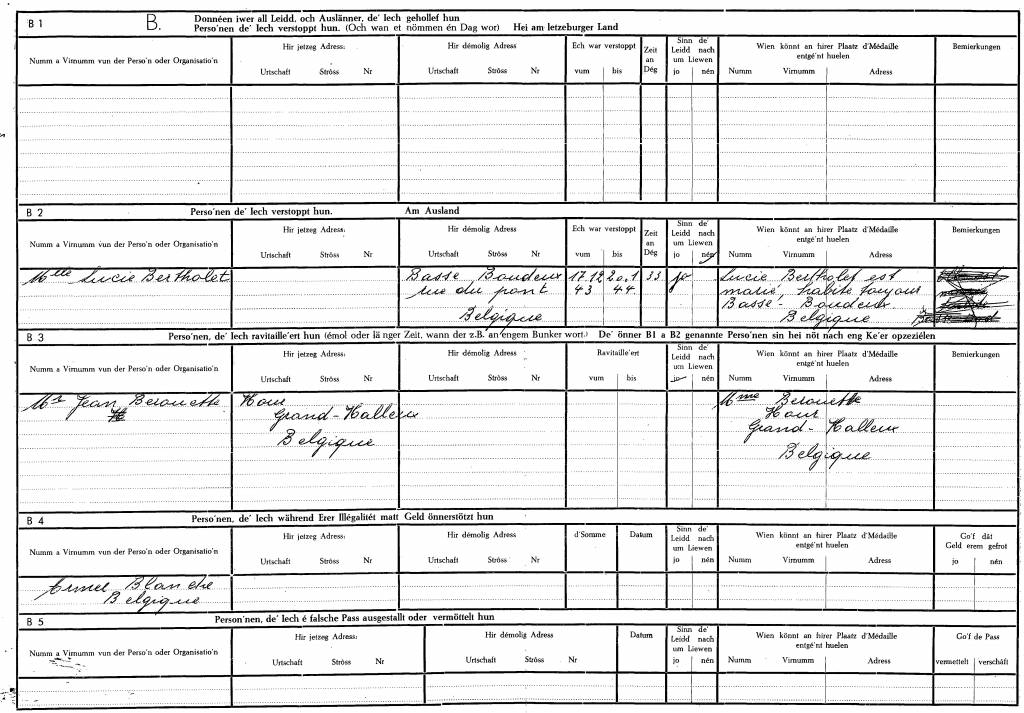 B 1 B. Donnéen iwer all Leidd, och Auslänner, de' Iech gehollef hun
Perso'nen de' Iech verstoppt hun. (Och wan et nömmen én Dag wor) Hei am letzeburger Land
Numm a Virnumm vun der Perso'n oder Organisatio'n
Hir jetzeg Adress:
Urtschaft Ströss Nr
Hir démolig Adress
Urtschaft Ströss Nr
Ech war verstoppt
vum bis
Zeit
an
Dég
Sinn de'
Leidd nach
um Liewen
jo nén
Wien könnt an hirer Plaatz d'Médaille
entgé'nt huelen
Numm Virnumm Adress
Bemierkungen
B 2 Perso'nen de' Iech verstoppt hun. Am Ausland
Numm a Virnumm vun der Perso'n oder Organisatio'n
Hir jetzeg Adress:
Urtschaft Ströss Nr
Hir démolig Adress
Urtschaft Ströss Nr
Ech war verstoppt
vum bis
Zeit
an
Dég
Sinn de'
Leidd nach
um Liewen
jo nén
Wien könnt an hirer Plaatz d'Médaille
entgé'nt huelen
Numm Virnumm Adress
Bemierkungen
Mlle Lucie Bertholet Basse Boudeux 17.12 20.1 33 jo Lucie Bertholet est
rue du pont 43 44 marié habite toujour
Basse-Boudeux
Belgique Belgique
B 3 Perso'nen, de' Iech ravitaille'ert hun (émol oder lä nger Zeit, wann der z.B. an engem Bunker wort.) De' önner B1 a B2 genannte Perso'nen sin hei nöt nach eng Ke'er opzeziélen
Numm a Virnumm vun der Perso'n oder Organisatio'n
Hir jetzeg Adress:
Urtschaft Ströss Nr
Hir démolig Adress
Urtschaft Ströss Nr
Ravitaille'ert
vum bis
Sinn de'
Leidd nach
um Liewen
jo nén
Wien könnt an hirer Plaatz d'Médaille
entgé'nt huelen
Numm Virnumm Adress
Bemierkungen
Mr Jean Berouette Hour Mme Berouette
Grand-Halleux Hour
Belgique Grand-Halleux
Belgique
B 4 Perso'nen, de' Iech während Erer Illégalitét matt Geld önnerstötzt hun
Numm a Virnumm vun der Perso'n oder Organisatio'n
Hir jetzeg Adress:
Urtschaft Ströss Nr
Hir démolig Adress
Urtschaft Ströss Nr
d'Somme Datum
Sinn de'
Leidd nach
um Liewen
jo nén
Wien könnt an hirer Plaatz d'Médaille
entgé'nt huelen
Numm Virnumm Adress
Go'f dât
Geld erem gefrot
jo nén
Blanche
Belgique
B 5 Person'nen, de' Iech é falsche Pass ausgestallt oder vermöttelt hun
Numm a Virnumm vun der Perso'n oder Organisatio'n
Hir jetzeg Adress:
Urtschaft Ströss Nr
Hir démolig Adress:
Urtschaft Ströss Nr
Datum
Sinn de'
Leidd nach
um Liewen
jo nén
Wien könnt an hirer Plaatz d'Médaille
entgé'nt huelen
Numm Virnumm Adress
Go'f de Pass
vermettelt verschäft